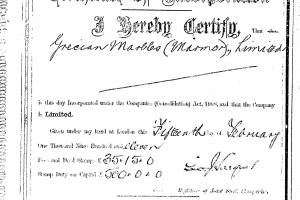 Certificate of Incorporation
I Hereby Certify, That
Grecian Marbles (Marmor), Limited
is this day Incorporated under the Companies (Consolidation) Act, 1908, and that the Company
is Limited.
Given under my hand at London this Fifteenth day of February
One Thousand Nine Hundred and Eleven
Fee and Deed Stamps £ 35.15.0
Stamp Duty on Capital £ 500.0.0
Registrar of Joint Stock Companies.